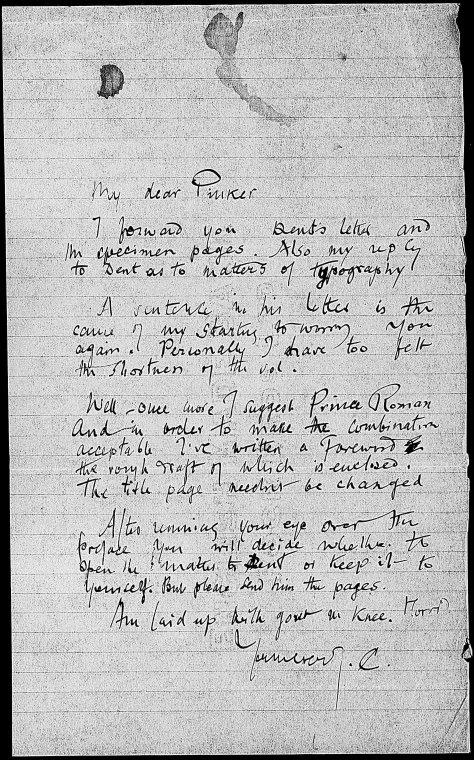 My dear Pinker
I forward you Dent's letter and
the specimen pages. Also my reply
to Dent as to matters of typography
A sentence in his letter is the
cause of my starting to worry you
again. Personally I have too felt
the shortness of the vol.
Well - once more I suggest Prince Roman
And in order to make the combination
acceptable I've written a Foreword
the rough draft of which is enclosed.
The title page needn't be changed
After running your eye over the
preface you will decide whether to
open the matter to Dent or keep it to
yourself. But please send him the pages.
Am laid up with gout in knee. Horrid
Yours ever J. C.